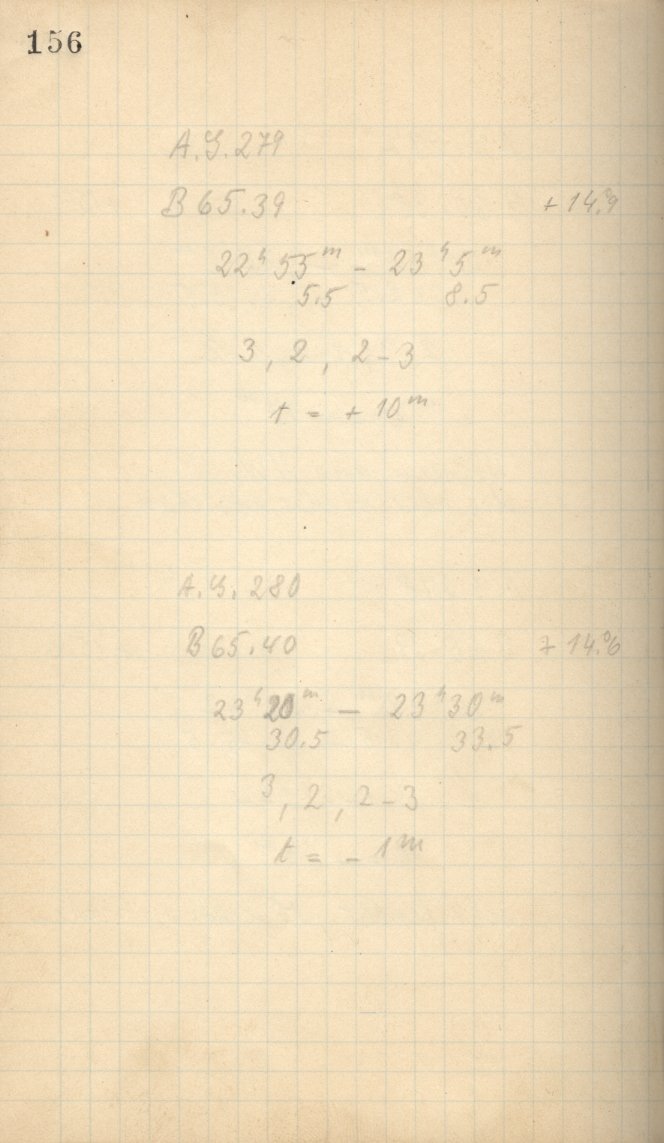 156
A.G. 279
B 65.39 + 14.°9
22ʰ 55ᵐ - 23ʰ 5ᵐ
5.5 8.5
3, 2, 2-3
t = + 10ᵐ
A.G. 280
B 65.40 + 14.°6
23ʰ 20ᵐ — 23ʰ 30ᵐ
30.5 33.5
3, 2, 2-3
t = - 1ᵐ